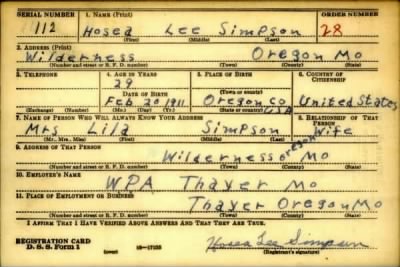 SERIAL NUMBER 1. NAME (Print) ORDER NUMBER
112 Hosea Lee Simpson 28
(First) (Middle) (Last)
2. ADDRESS (Print)
Wilderness Oregon Mo
(Number and street or R. F. D. number) (Town) (County) (State)
3. TELEPHONE 4. AGE IN YEARS 5. PLACE OF BIRTH 6. COUNTRY OF CITIZENSHIP
29
(Town or county)
DATE OF BIRTH
Feb 20 1911 Oregon Co USA United States
(Exchange) (Number) (Mo.) (Day) (Yr.) (State or country)
7. NAME OF PERSON WHO WILL ALWAYS KNOW YOUR ADDRESS 8. RELATIONSHIP OF THAT PERSON
Mrs Lila Simpson Wife
(Mr., Mrs., Miss) (First) (Middle) (Last)
9. ADDRESS OF THAT PERSON
Wilderness Oregon Mo
(Number and street or R. F. D. number) (Town) (County) (State)
10. EMPLOYER'S NAME
WPA Thayer Mo
11. PLACE OF EMPLOYMENT OR BUSINESS
Thayer Oregon Mo
(Number and street or R. F. D. number) (Town) (County) (State)
I AFFIRM THAT I HAVE VERIFIED ABOVE ANSWERS AND THAT THEY ARE TRUE.
REGISTRATION CARD
D. S. S. Form 1 (over) 16—17105 Hosea Lee Simpson
(Registrant's signature)